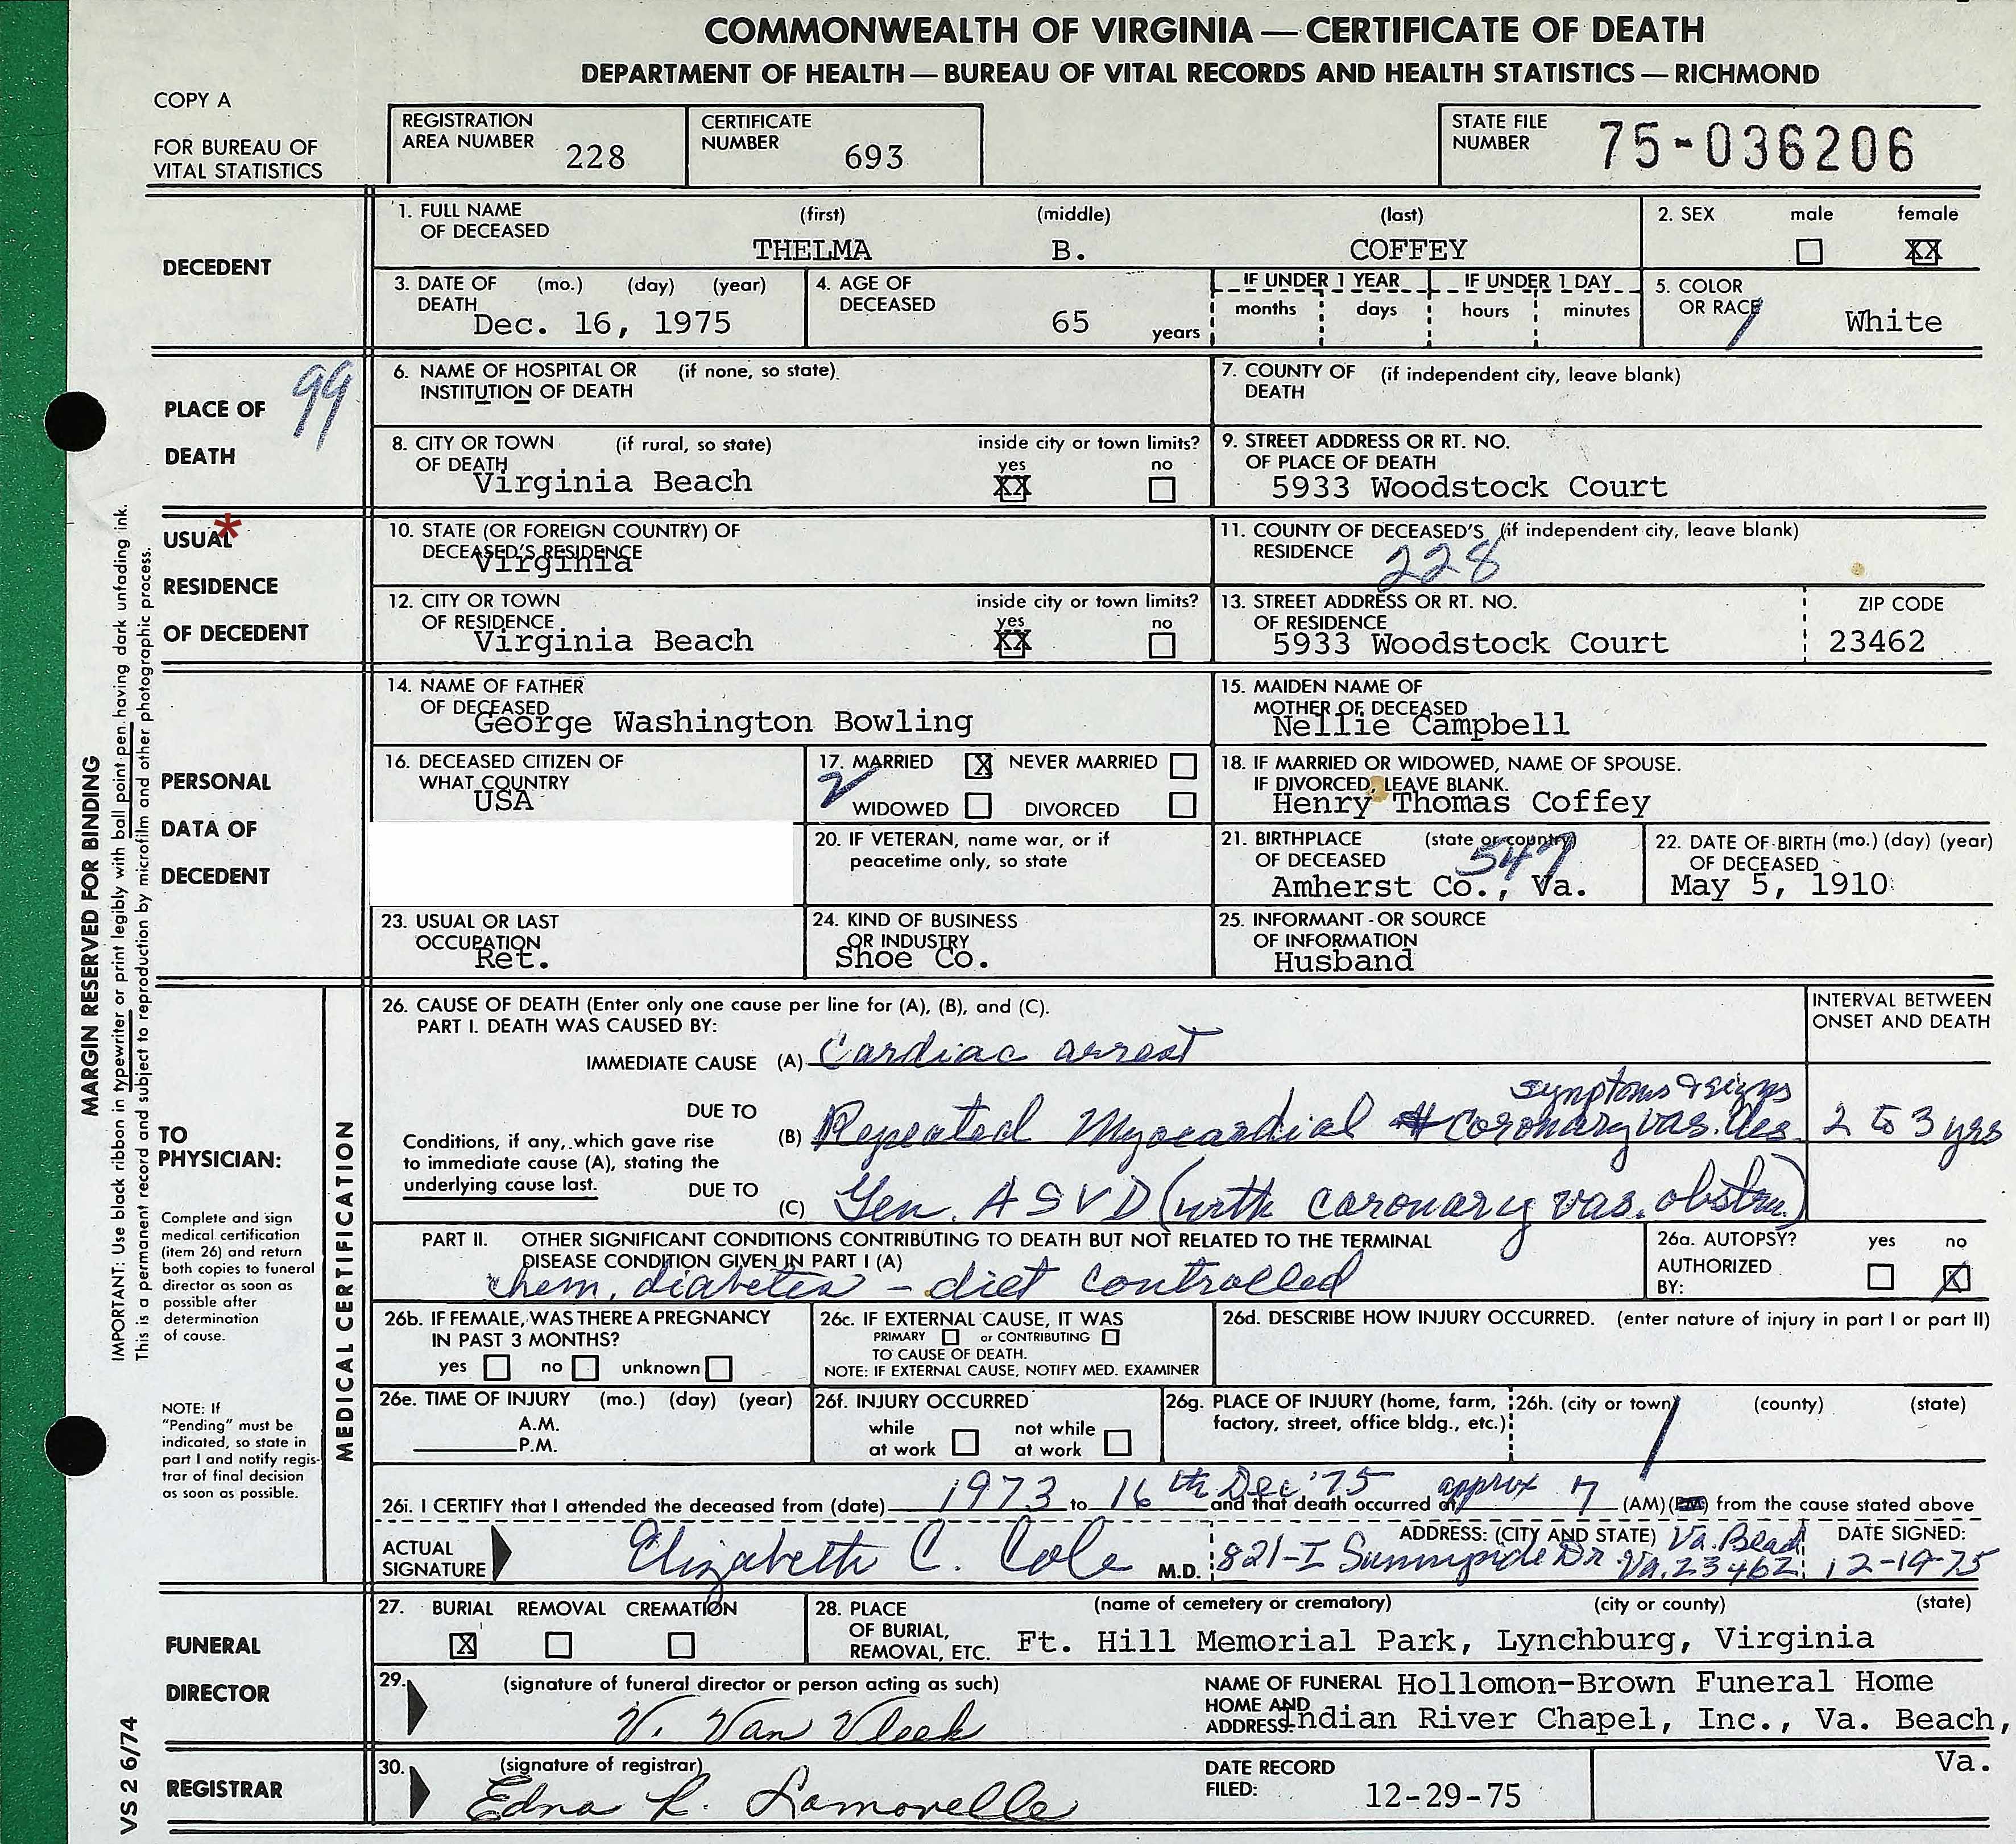 COMMONWEALTH OF VIRGINIA — CERTIFICATE OF DEATH
DEPARTMENT OF HEALTH — BUREAU OF VITAL RECORDS AND HEALTH STATISTICS — RICHMOND
COPY A
FOR BUREAU OF
VITAL STATISTICS
REGISTRATION
AREA NUMBER 228
CERTIFICATE
NUMBER 693
STATE FILE
NUMBER 75-036206
DECEDENT
1. FULL NAME (first) (middle) (last)
OF DECEASED THELMA B. COFFEY
2. SEX male female
XX
3. DATE OF (mo.) (day) (year)
DEATH Dec. 16, 1975
4. AGE OF
DECEASED 65 years
IF UNDER 1 YEAR IF UNDER 1 DAY
months days hours minutes
5. COLOR
OR RACE White
PLACE OF
DEATH
99
6. NAME OF HOSPITAL OR (if none, so state)
INSTITUTION OF DEATH
7. COUNTY OF (if independent city, leave blank)
DEATH
8. CITY OR TOWN (if rural, so state) inside city or town limits?
OF DEATH yes no
Virginia Beach XX
9. STREET ADDRESS OR RT. NO.
OF PLACE OF DEATH
5933 Woodstock Court
USUAL*
RESIDENCE
OF DECEDENT
10. STATE (OR FOREIGN COUNTRY) OF
DECEASED'S RESIDENCE
Virginia
11. COUNTY OF DECEASED'S (if independent city, leave blank)
RESIDENCE 228
12. CITY OR TOWN inside city or town limits?
OF RESIDENCE yes no
Virginia Beach XX
13. STREET ADDRESS OR RT. NO. ZIP CODE
OF RESIDENCE
5933 Woodstock Court 23462
PERSONAL
DATA OF
DECEDENT
14. NAME OF FATHER
OF DECEASED
George Washington Bowling
15. MAIDEN NAME OF
MOTHER OF DECEASED
Nellie Campbell
16. DECEASED CITIZEN OF
WHAT COUNTRY
USA
17. MARRIED X NEVER MARRIED
2
WIDOWED DIVORCED
18. IF MARRIED OR WIDOWED, NAME OF SPOUSE.
IF DIVORCED, LEAVE BLANK.
Henry Thomas Coffey
20. IF VETERAN, name war, or if
peacetime only, so state
21. BIRTHPLACE (state or country)
OF DECEASED 547
Amherst Co., Va.
22. DATE OF BIRTH (mo.) (day) (year)
OF DECEASED
May 5, 1910
23. USUAL OR LAST
OCCUPATION
Ret.
24. KIND OF BUSINESS
OR INDUSTRY
Shoe Co.
25. INFORMANT - OR SOURCE
OF INFORMATION
Husband
MARGIN RESERVED FOR BINDING
IMPORTANT: Use black ribbon in typewriter or print legibly with ball point pen having dark unfading ink.
This is a permanent record and subject to reproduction by microfilm and other photographic process.
TO
PHYSICIAN:
Complete and sign
medical certification
(item 26) and return
both copies to funeral
director as soon as
possible after
determination
of cause.
NOTE: If
"Pending" must be
indicated, so state in
part I and notify regis-
trar of final decision
as soon as possible.
MEDICAL CERTIFICATION
26. CAUSE OF DEATH (Enter only one cause per line for (A), (B), and (C).
PART I. DEATH WAS CAUSED BY:
INTERVAL BETWEEN
ONSET AND DEATH
IMMEDIATE CAUSE (A) Cardiac arrest
symptoms & signs
DUE TO
(B) Repeated Myocardial coronary vas. des. 2 to 3 yrs
Conditions, if any, which gave rise
to immediate cause (A), stating the
underlying cause last.
DUE TO
(C) Gen. ASVD (with coronary vas. obstru.)
PART II. OTHER SIGNIFICANT CONDITIONS CONTRIBUTING TO DEATH BUT NOT RELATED TO THE TERMINAL
DISEASE CONDITION GIVEN IN PART I (A)
chem. diabetes - diet controlled
26a. AUTOPSY? yes no
AUTHORIZED
BY: X
26b. IF FEMALE, WAS THERE A PREGNANCY
IN PAST 3 MONTHS?
yes no unknown
26c. IF EXTERNAL CAUSE, IT WAS
PRIMARY or CONTRIBUTING
TO CAUSE OF DEATH.
NOTE: IF EXTERNAL CAUSE, NOTIFY MED. EXAMINER
26d. DESCRIBE HOW INJURY OCCURRED. (enter nature of injury in part I or part II)
26e. TIME OF INJURY (mo.) (day) (year)
A.M.
P.M.
26f. INJURY OCCURRED
while not while
at work at work
26g. PLACE OF INJURY (home, farm,
factory, street, office bldg., etc.)
26h. (city or town) (county) (state)
26i. I CERTIFY that I attended the deceased from (date) 1973 to 16th Dec '75 and that death occurred at approx 7 (AM) (PM) from the cause stated above
ACTUAL
SIGNATURE Elizabeth C. Cole M.D.
ADDRESS: (CITY AND STATE) Va. Beach
821-I Sunnyside Dr Va. 23462
DATE SIGNED:
12-19-75
FUNERAL
DIRECTOR
27. BURIAL REMOVAL CREMATION
X
28. PLACE (name of cemetery or crematory) (city or county) (state)
OF BURIAL,
REMOVAL, ETC. Ft. Hill Memorial Park, Lynchburg, Virginia
29. (signature of funeral director or person acting as such)
V. Van Vleek
NAME OF FUNERAL Hollomon-Brown Funeral Home
HOME AND
ADDRESS: Indian River Chapel, Inc., Va. Beach,
Va.
REGISTRAR
30. (signature of registrar)
Edna R. Lamorelle
DATE RECORD
FILED: 12-29-75
VS 2 6/74